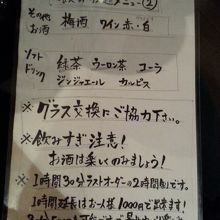 メニュー②
その他 梅酒 ワイン 赤・白
お酒
ソフト 緑茶 ウーロン茶 コーラ
ドリンク ジンジャエール カルピス
※グラス交換にご協力下さい。
※飲みすぎ注意!
お酒は楽しくのみましょう!
※1時間30分ラストオーダーの2時間制です。
1時間延長はお一人様1000円で出来ます!